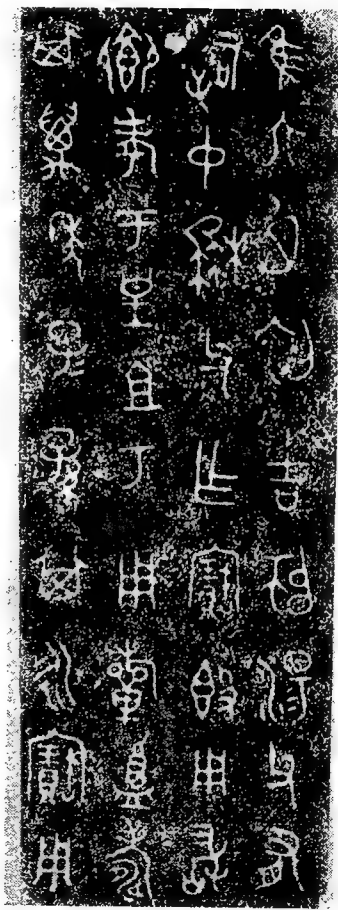 隹六月初吉師湯父有
𤔲中柟父乍寶𣪘用敢
鄉孝于皇且丂用𣄨眉壽
其萬年子=孫=其永寶用